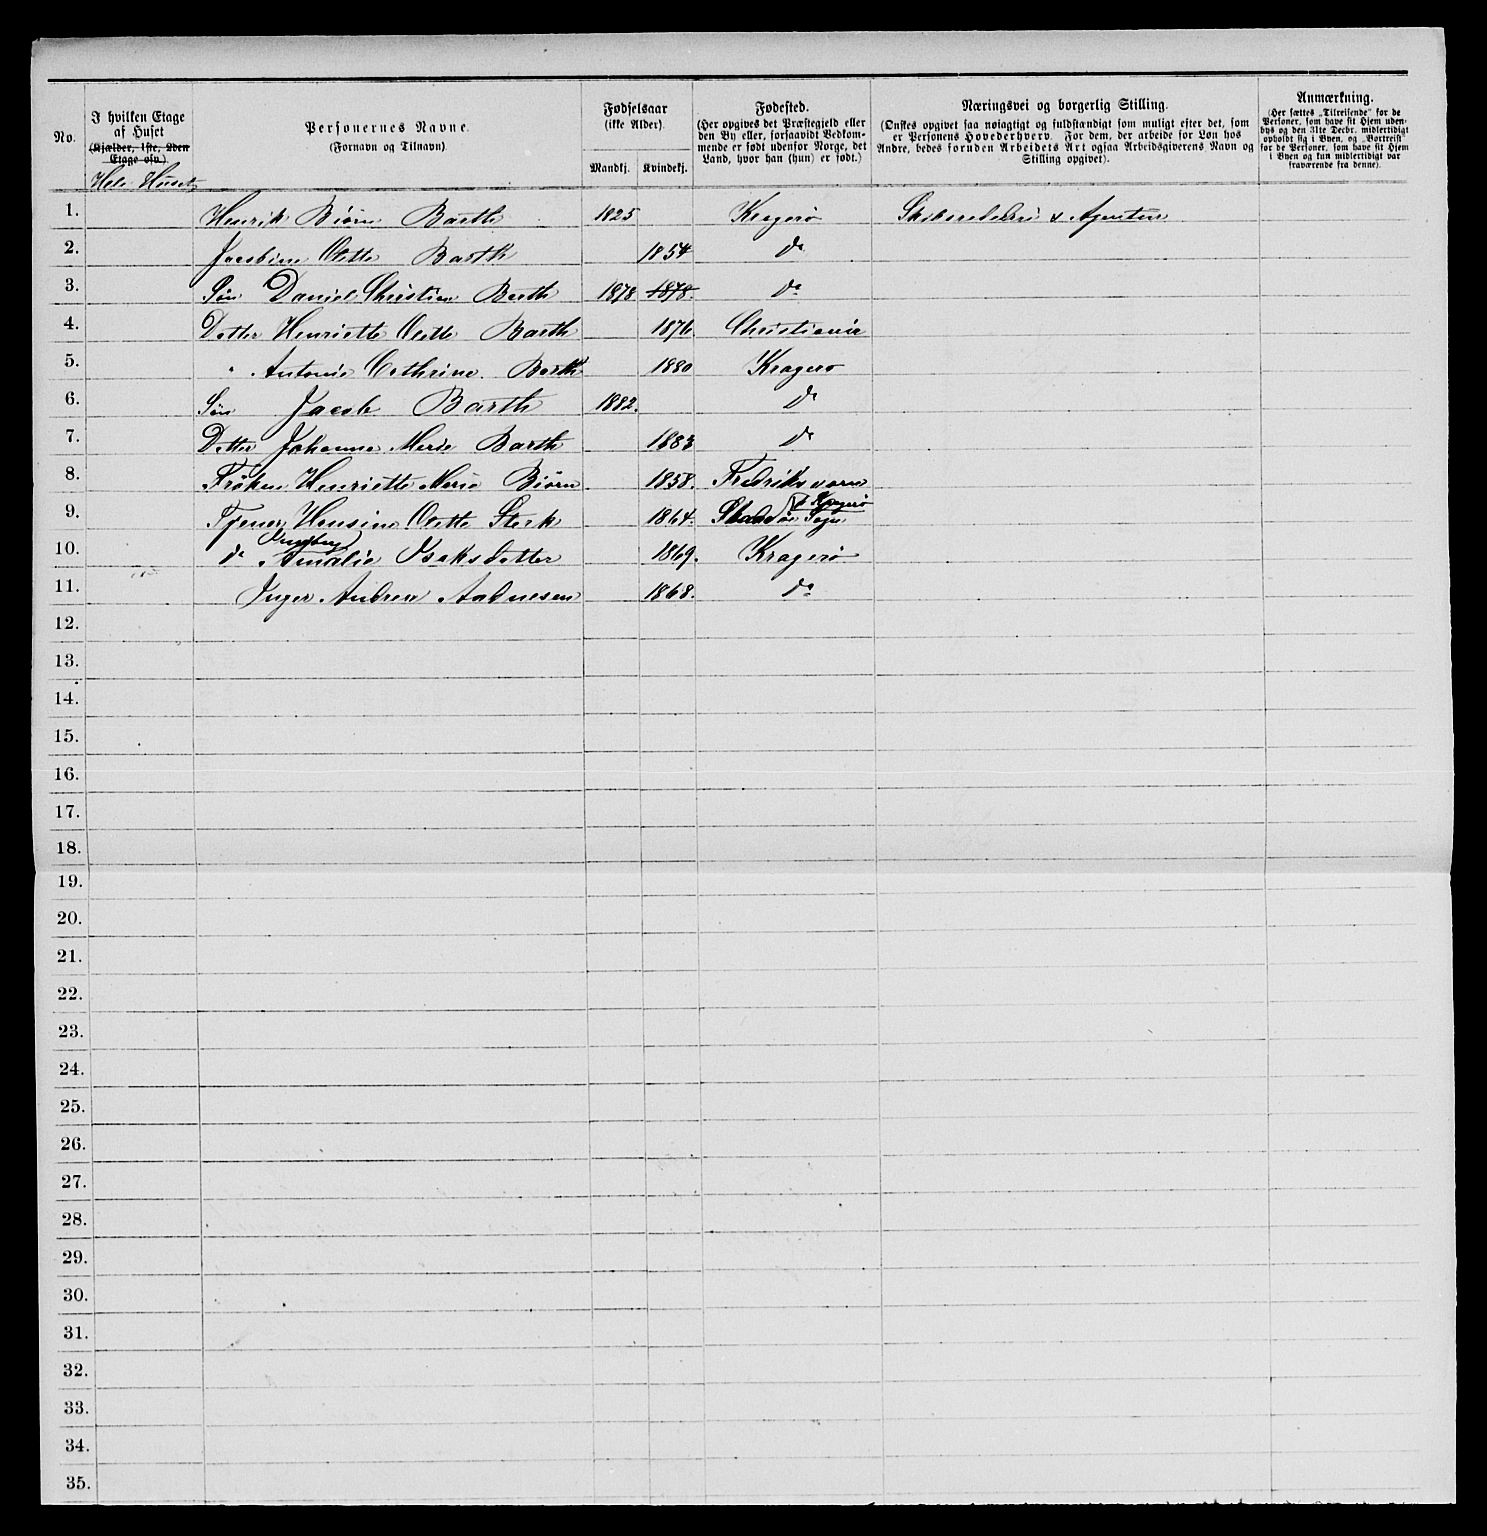 No.
I hvilken Etage af Huset (Kjælder, 1ste, 2den Etage osv.)
Personernes Navne.
(Fornavn og Tilnavn)
Fødselsaar
(ikke Alder)
Mandkj.
Kvindekj.
Fødested.
(Her opgives det Præstegjeld eller den By eller, forsaavidt Vedkommende er født udenfor Norge, det Land, hvor han (hun) er født.)
Næringsvei og borgerlig Stilling.
(Ønskes opgivet saa nøiagtigt og fuldstændigt som muligt efter det, som er Personens Hovederhverv. For dem, der arbeide for Løn hos Andre, bedes foruden Arbeidets Art ogsaa Arbeidsgiverens Navn og Stilling opgivet).
Anmærkning.
(Her sættes „Tilreisende" for de Personer, som have sit Hjem udenbys og den 31te Decbr. midlertidigt opholdt sig i Byen, og „Bortreist" for de Personer, som have sit Hjem i Byen og kun midlertidigt var fraværende fra denne).
Hele Huset
1. Henrik Biørn Barth 1825 Kragerø Skibsrederi & Agentur
2. Jacobine Octte Barth 1854 do
3. Søn Daniel Christian Barth 1878 1878. do
4. Datter Henriette Octte Barth 1876 Christiania
5. " Antonie Cathrine Barth 1880 Kragerø
6. Søn Jacob Barth 1882. do
7. Datter Johanne Marie Barth 1883 do
8. Frøken Henriette Marie Biørn 1858. Fredriksværn
9. Tjener Hansine Octte Sterk 1864. Skaadø Sogn v Kragerø
10. do Ingeborg Amalie Isaksdatter 1869. Kragerø
11. Inger Andrea Aadnesen 1868. do
12.
13.
14.
15.
16.
17.
18.
19.
20.
21.
22.
23.
24.
25.
26.
27.
28.
29.
30.
31.
32.
33.
34.
35.